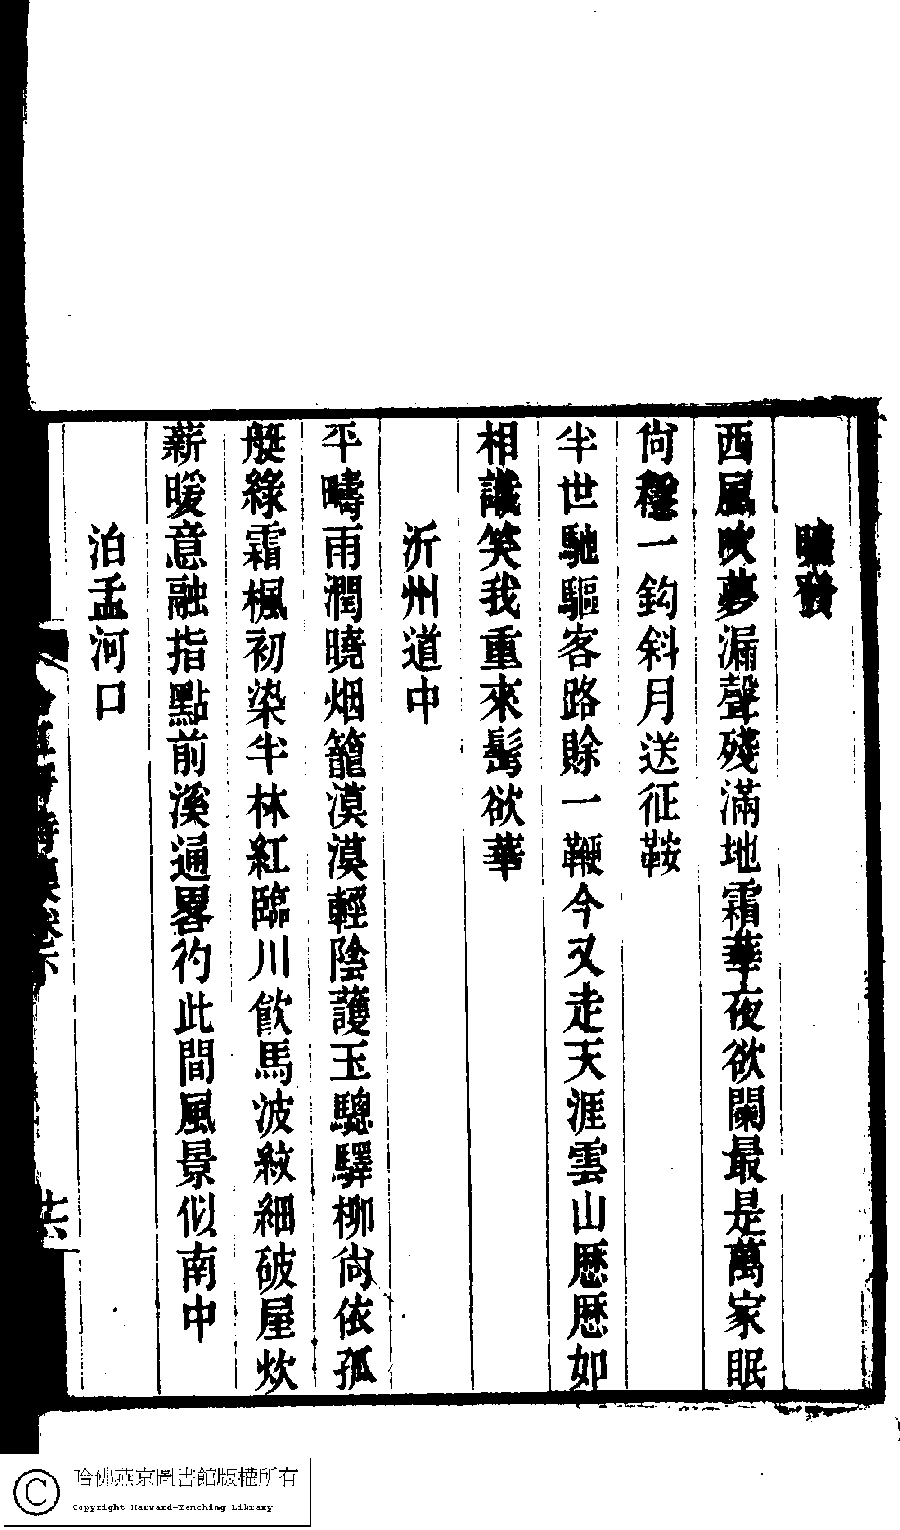 曉發
西風吹夢漏聲殘滿地霜華夜欲闌最是萬家眠
尙穩一鈎斜月送征鞍
半世馳驅客路賒一鞭今又走天涯雲山歷歷如
相識笑我重來髩欲華
沂州道中
平疇雨潤曉烟籠漠漠輕陰護玉驄驛柳尙依孤
艇綠霜楓初染半林紅臨川飮馬波紋細破屋炊
薪暖意融指點前溪通畧彴此間風景似南中
泊孟河口
詩集卷下
十六
哈佛燕京圖書館版權所有
Copyright Harvard-Yenching Library